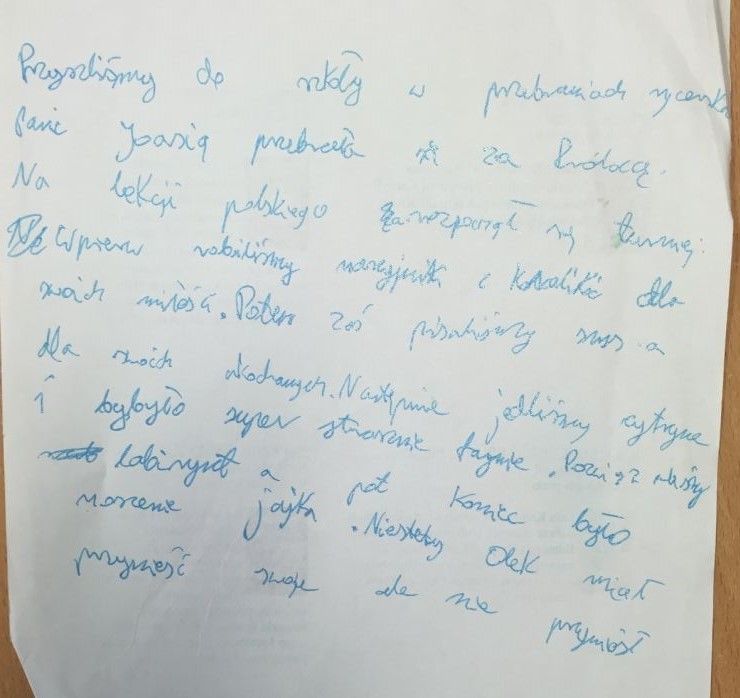 Przyszliśmy do szkoły w przebraniach rycerski
Panie Joasią przebrała się za Królową.
Na lekcji polskiego rozpoczął się turniej.
Wpierw robiliśmy naszyjniki z koralików dla
swoich miłość. Potem zaś pisaliśmy sms a
dla swoich ukochanych. Następnie jedliśmy cytrynę
i było super strasznie fajnie. szliśmy
labirynt a pot koniec było
noszenie jajka. Niestety Olek miał
przynieść swoje ale nie przyniósł